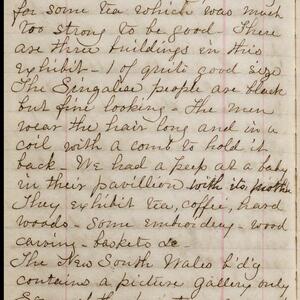 for some tea which was much
too strong to be good - There
are three buildings in this
exhibit - 1 of quite good size
The Singalise people are black
but fine looking - the men
wear the hair long and in a
coil with a comb to hold it
back. We had a peep at a baby
in their pavillion with its mother
They exhibit tea, coffie, hard
woods - some embroidery - wood
carving - baskets &c -
The New South Wales b'd'g
contains a picture gallery only